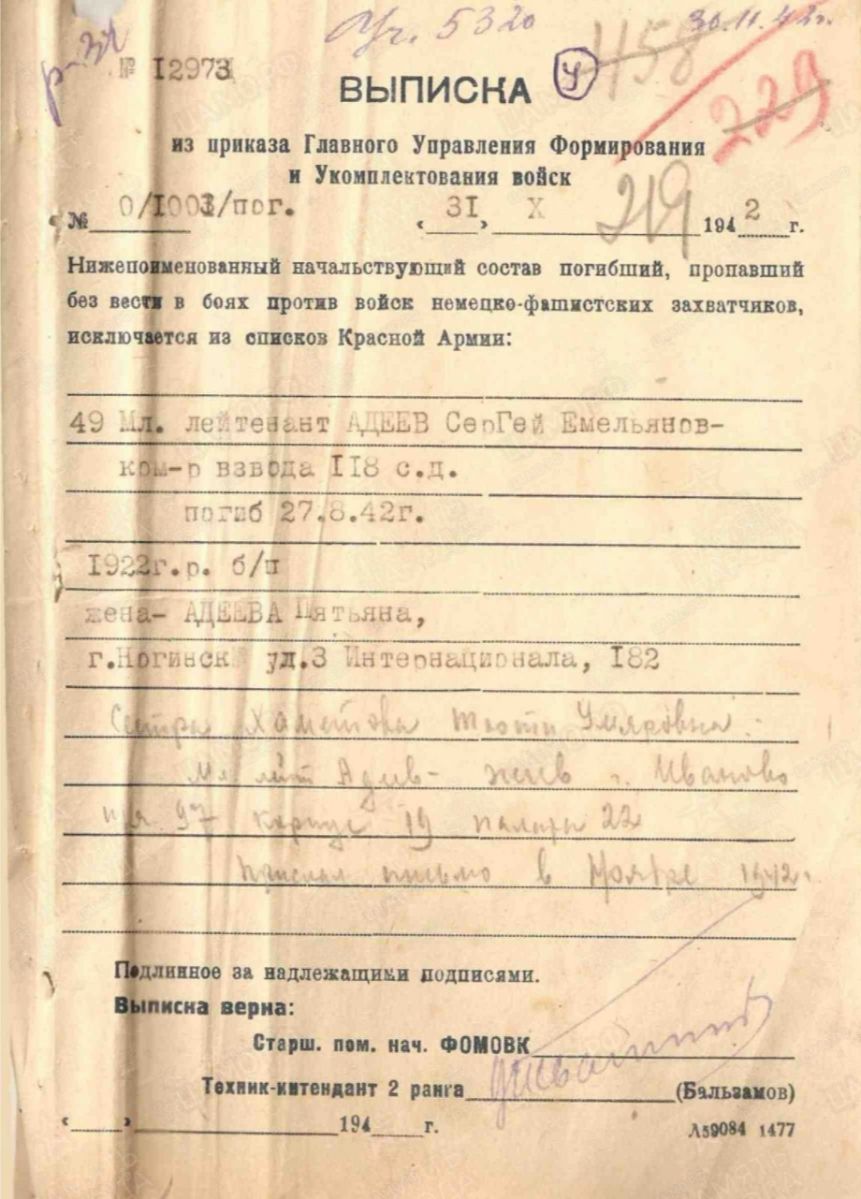 Уг. 5320 30.11.42г.
р-31
№ 12973
ВЫПИСКА
У
458
229
из приказа Главного Управления Формирования
и Укомплектования войск
219
№ 0/1003/пог. « 31 » X 1942 г.
Нижепоименованный начальствующий состав погибший, пропавший
без вести в боях против войск немецко-фашистских захватчиков,
исключается из списков Красной Армии:
49 Мл. лейтенант АДЕЕВ Сергей Емельянов-
ком-р взвода 118 с.д.
погиб 27.8.42г.
1922г.р. б/п
жена- АДЕЕВА Татьяна,
г.Ногинск ул.3 Интернационала, 182
Сестра Хаметова Умяровна
Мл лейт Адеев- жив г. Иваново
п/я 97 корпус 19 палата 22
прислал письмо в Ноябре 1942г.
Подлинное за надлежащими подписями.
Выписка верна:
Старш. пом. нач. ФОМОВК
Техник-интендант 2 ранга (Бальзамов)
« » 194 г.
Л59084 1477